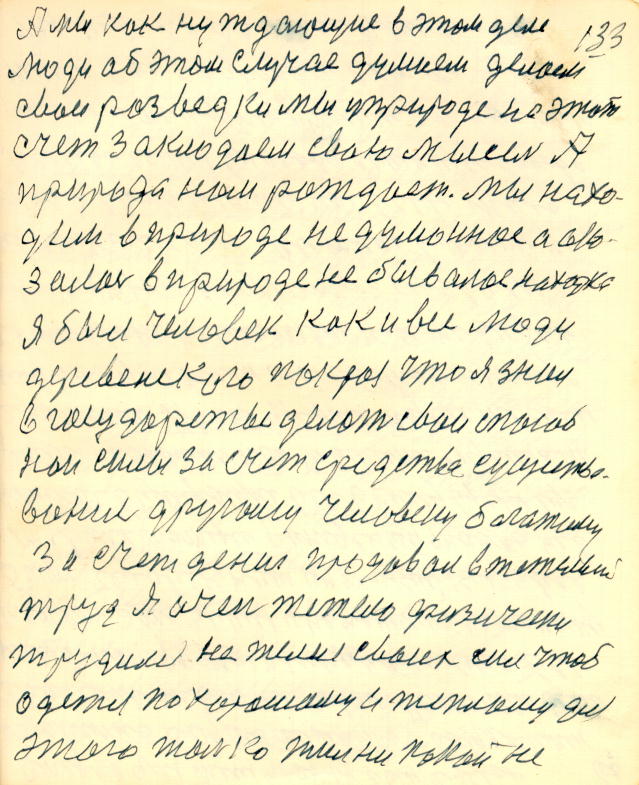 133
А мы как нуждающие в этом деле
люди об этом случае думаем делаем
свои разведки мы у природе на этот
счет закладаем свою мысел А
природа нам рождает. мы нахо-
дим в природе не думонное а ока-
залас в природе не бывалое находка
я был человек как и все люди
деревенского покроя что я знал
в государстве делат свои способ
нои силы за счет средства существо-
вания другому человеку богатому
За счет денег продавал в тяжелый
труд Я очен тяжело физически
трудилс не жалел своих сил чтоб
одется по хорошому и теплому для
этого толко жил ни какой не